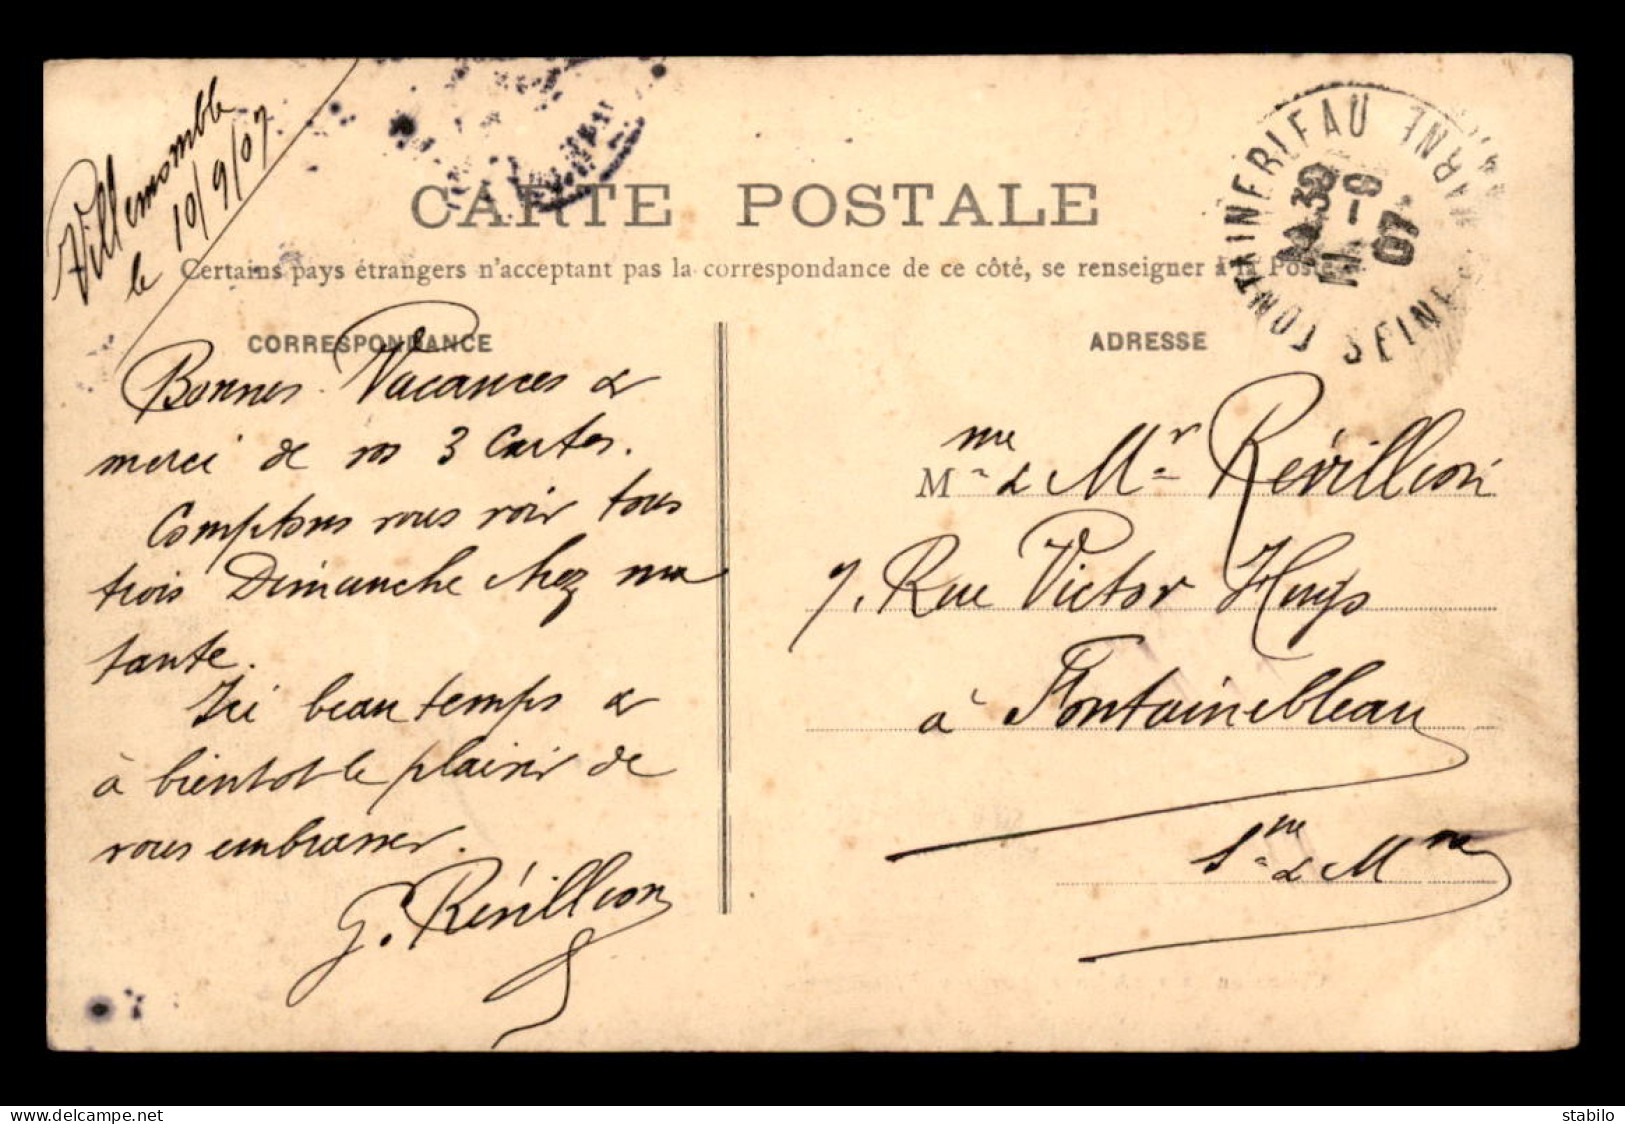 Villemomble
le 10/9/07
CARTE POSTALE
Certains pays étrangers n'acceptant pas la correspondance de ce côté, se renseigner à la Poste
CORRESPONDANCE
Bonnes Vacances &
merci de vos 3 cartes.
Comptons vous voir tous
trois Dimanche chez ma
tante.
Ici beau temps &
à bientot le plaisir de
vous embrasser.
G. Révillon
ADRESSE
Mme & Mr Révillon
7. Rue Victor Hugo
à Fontainebleau
Sne & Mne
FONTAINEBLEAU
SEINE-ET-MARNE
07
www.delcampe.net
stabilo